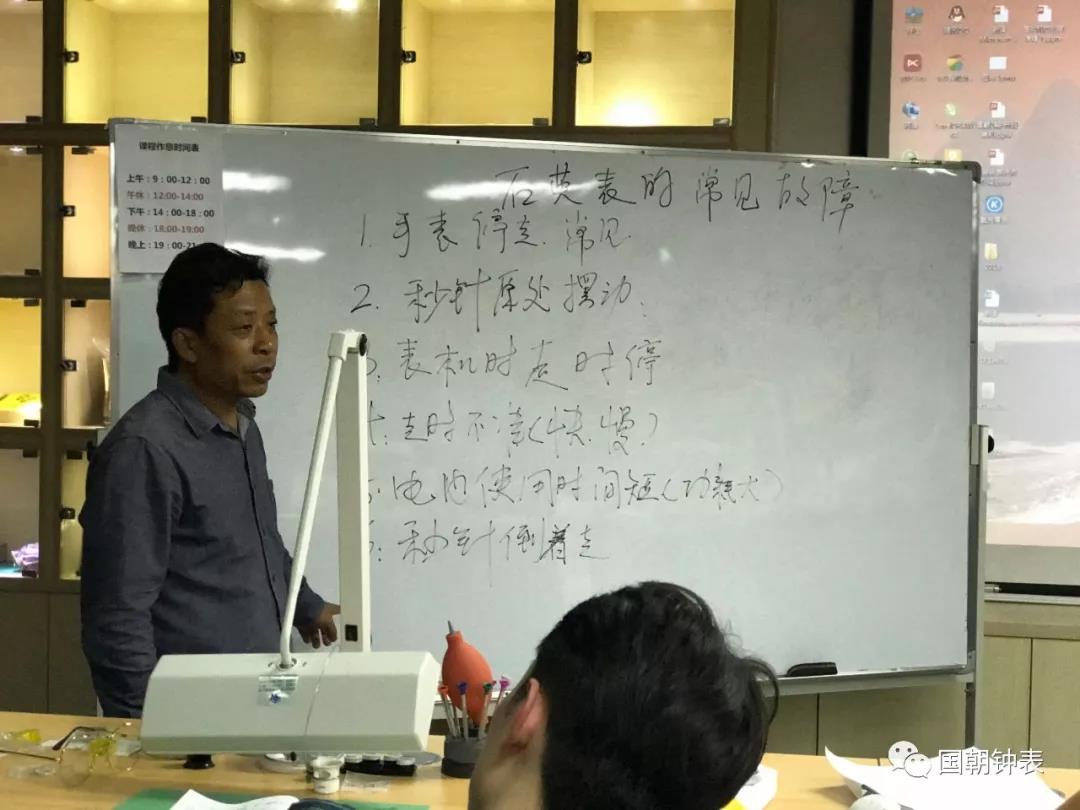 课程作息时间表
上午：9：00-12：00
午休：12:00-14:00
下午：14：00-18：00
晚休：18:00-19:00
晚上：19：00-21
石英表的常见故障
1.手表停走.常见.
2.秒针原处摆动.
3.表机时走时停
走时不准(快.慢.)
电池使用时间短(功耗大)
秒针倒着走
国朝钟表